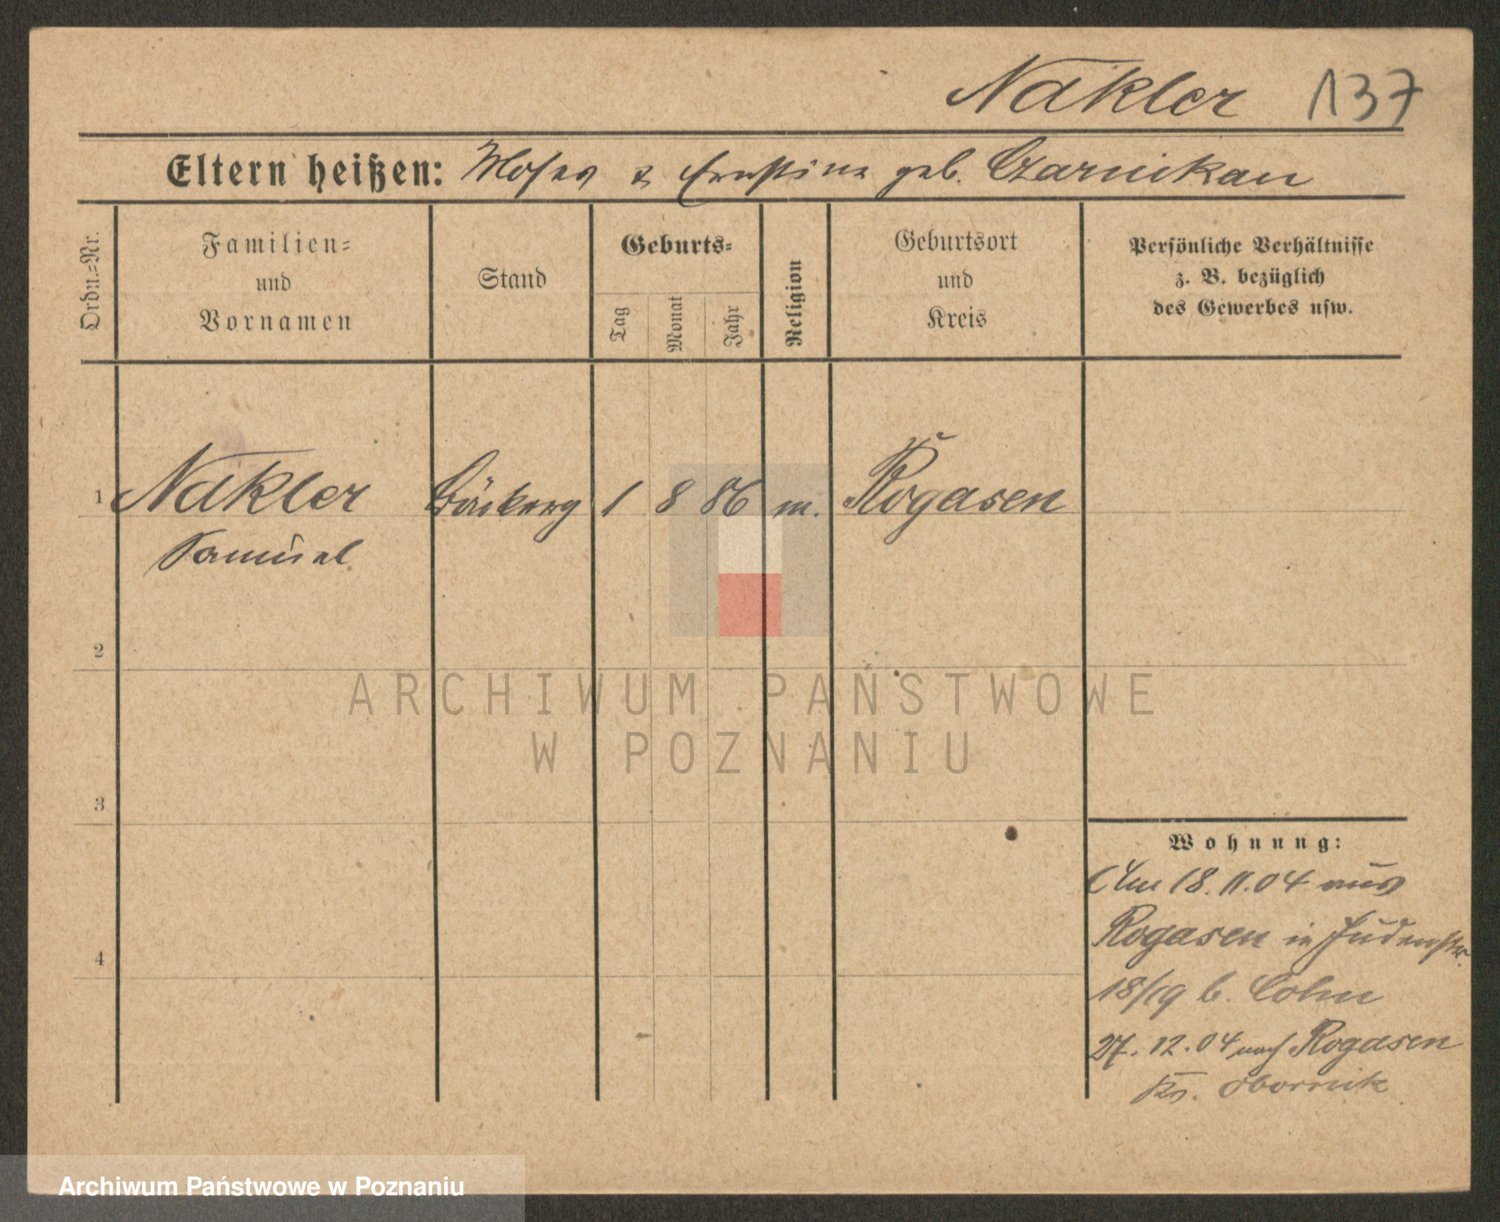 Nakler 137
Eltern heißen: Moses & Ernstine geb. Czarnikau
Ordn.=Nr.
Familien=
und
Vornamen
Stand
Geburts=
Tag
Monat
Jahr
Religion
Geburtsort
und
Kreis
Persönliche Verhältnisse
z. B. bezüglich
des Gewerbes usw.
1 Nakler Bäckerg 1 8 86 m. Rogasen
Samuel
2
3
4
Wohnung:
Am 18.11.04 aus
Rogasen in Judenstr.
18/19 b. Cohn
27.12.04 nach Rogasen
Kr. Obornik
ARCHIWUM PAŃSTWOWE
W POZNANIU
Archiwum Państwowe w Poznaniu